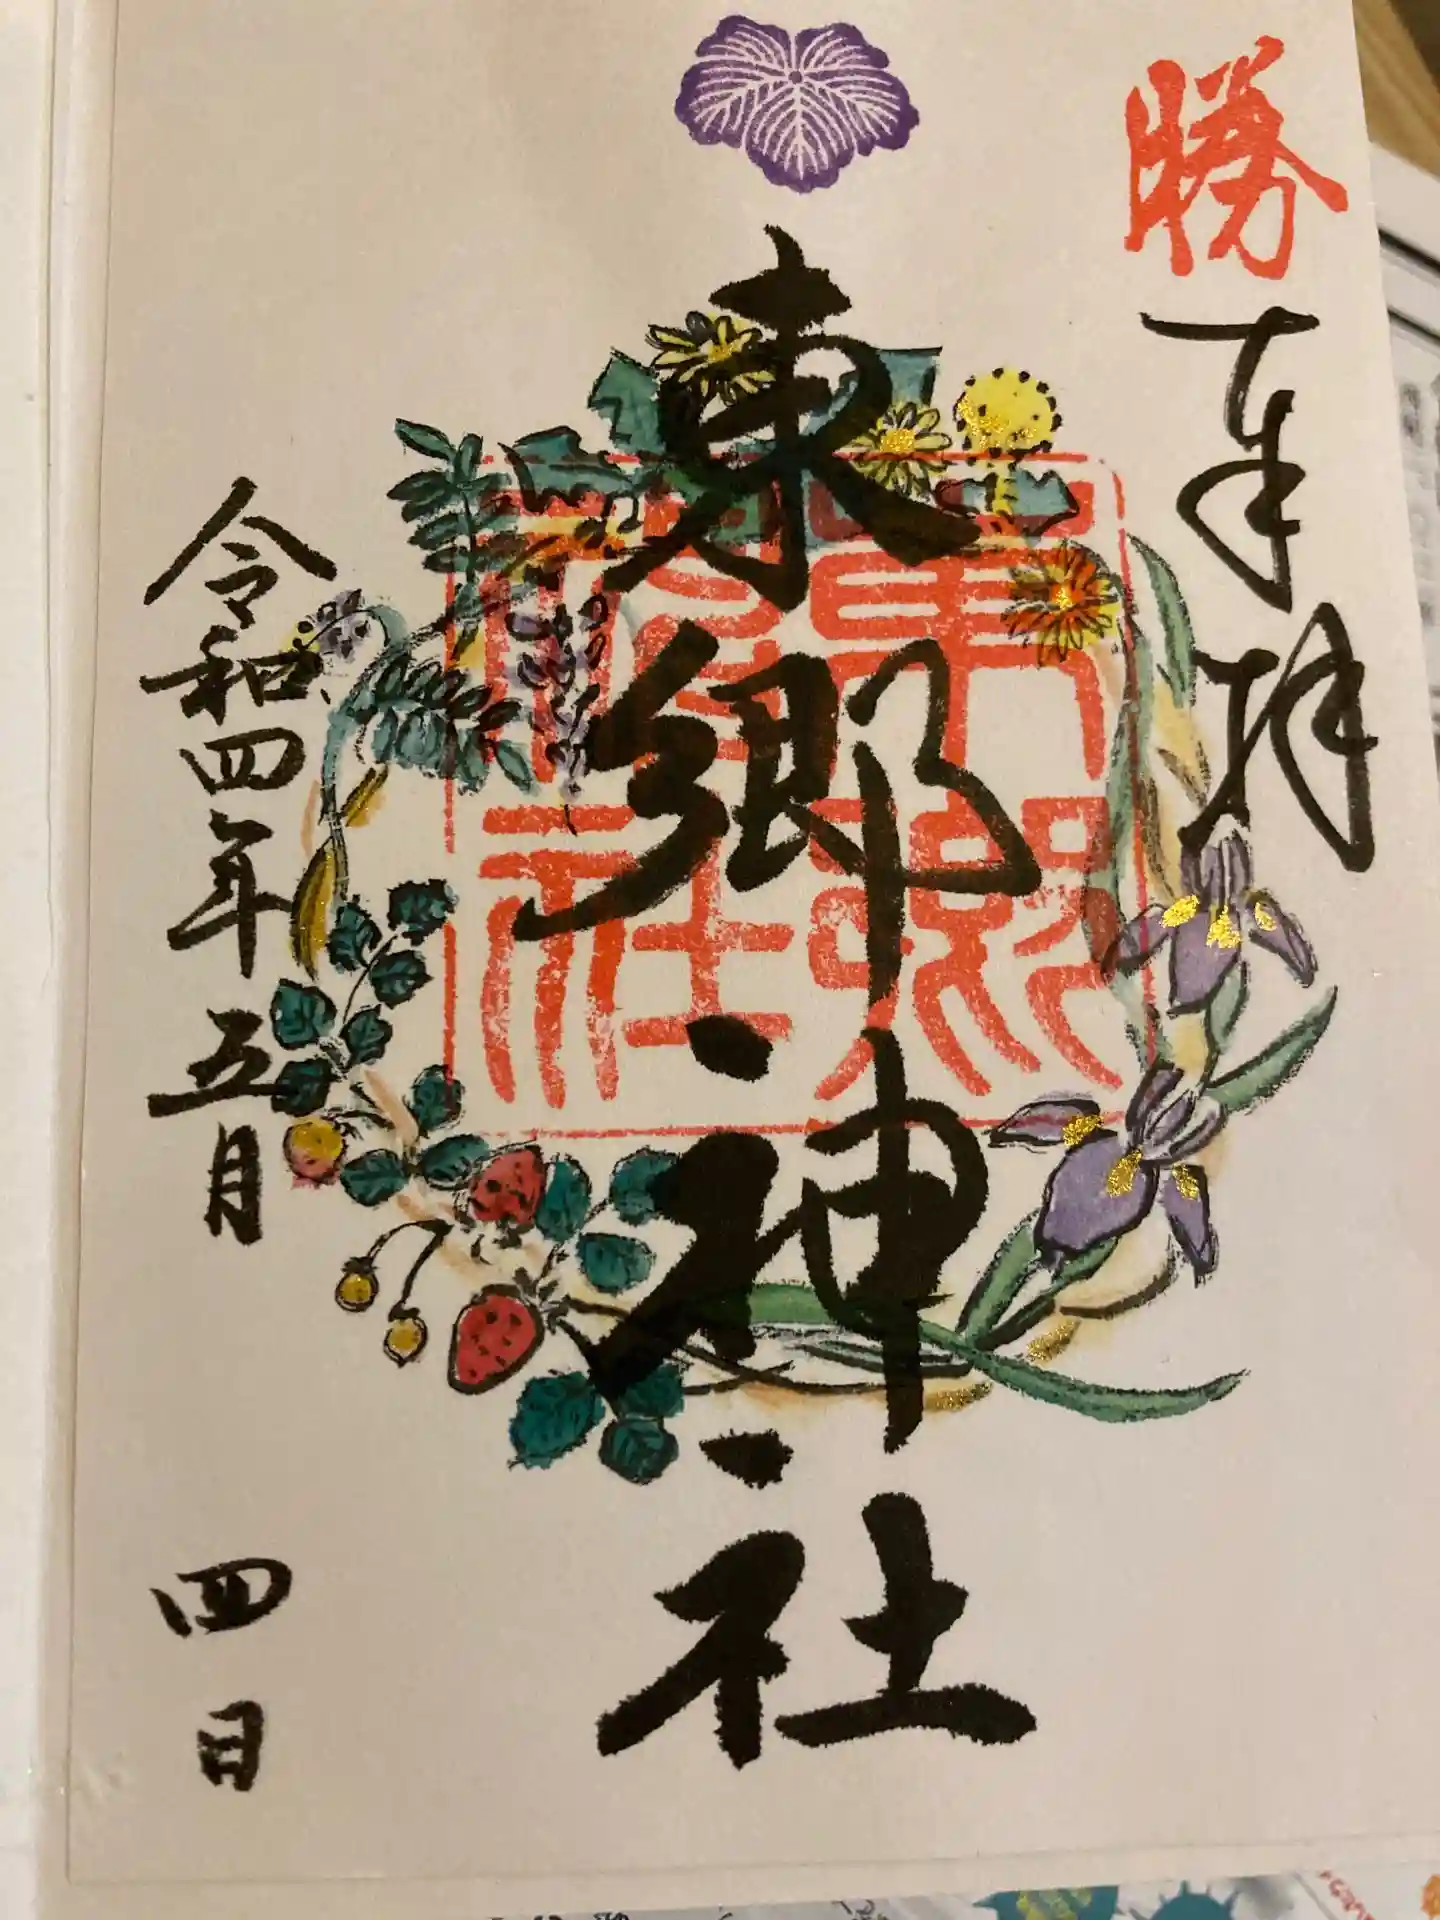 勝
奉拝
東郷神社
東郷神社
令和四年五月四日